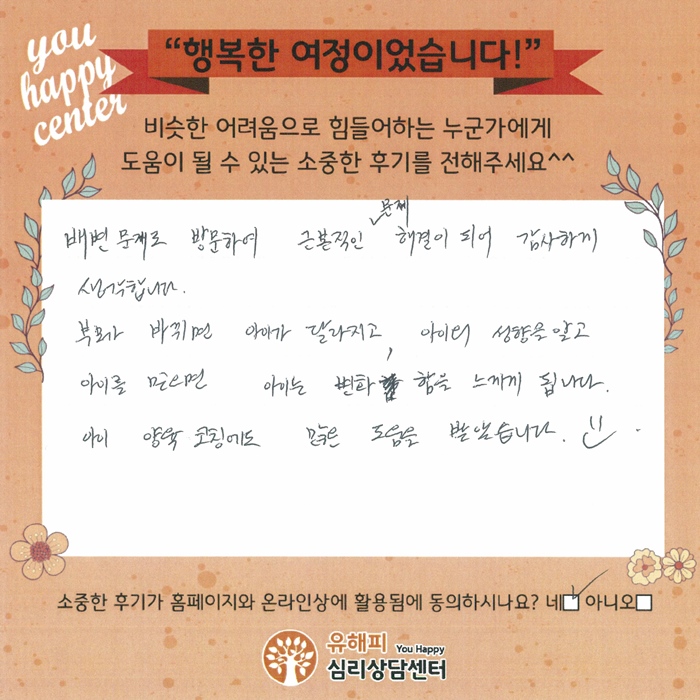 you
happy
center
“행복한 여정이었습니다!”
비슷한 어려움으로 힘들어하는 누군가에게
도움이 될 수 있는 소중한 후기를 전해주세요^^
배변 문제로 방문하여 근본적인 문제 해결이 되어 감사하게
생각합니다.
부모가 바뀌면 아이가 달라지고, 아이의 성향을 알고
아이를 믿으면 아이는 변화함을 느끼게 됩니다.
아이 양육 코칭에도 많은 도움을 받았습니다.
소중한 후기가 홈페이지와 온라인상에 활용됨에 동의하시나요? 네 아니오
유해피 You Happy
심리상담센터